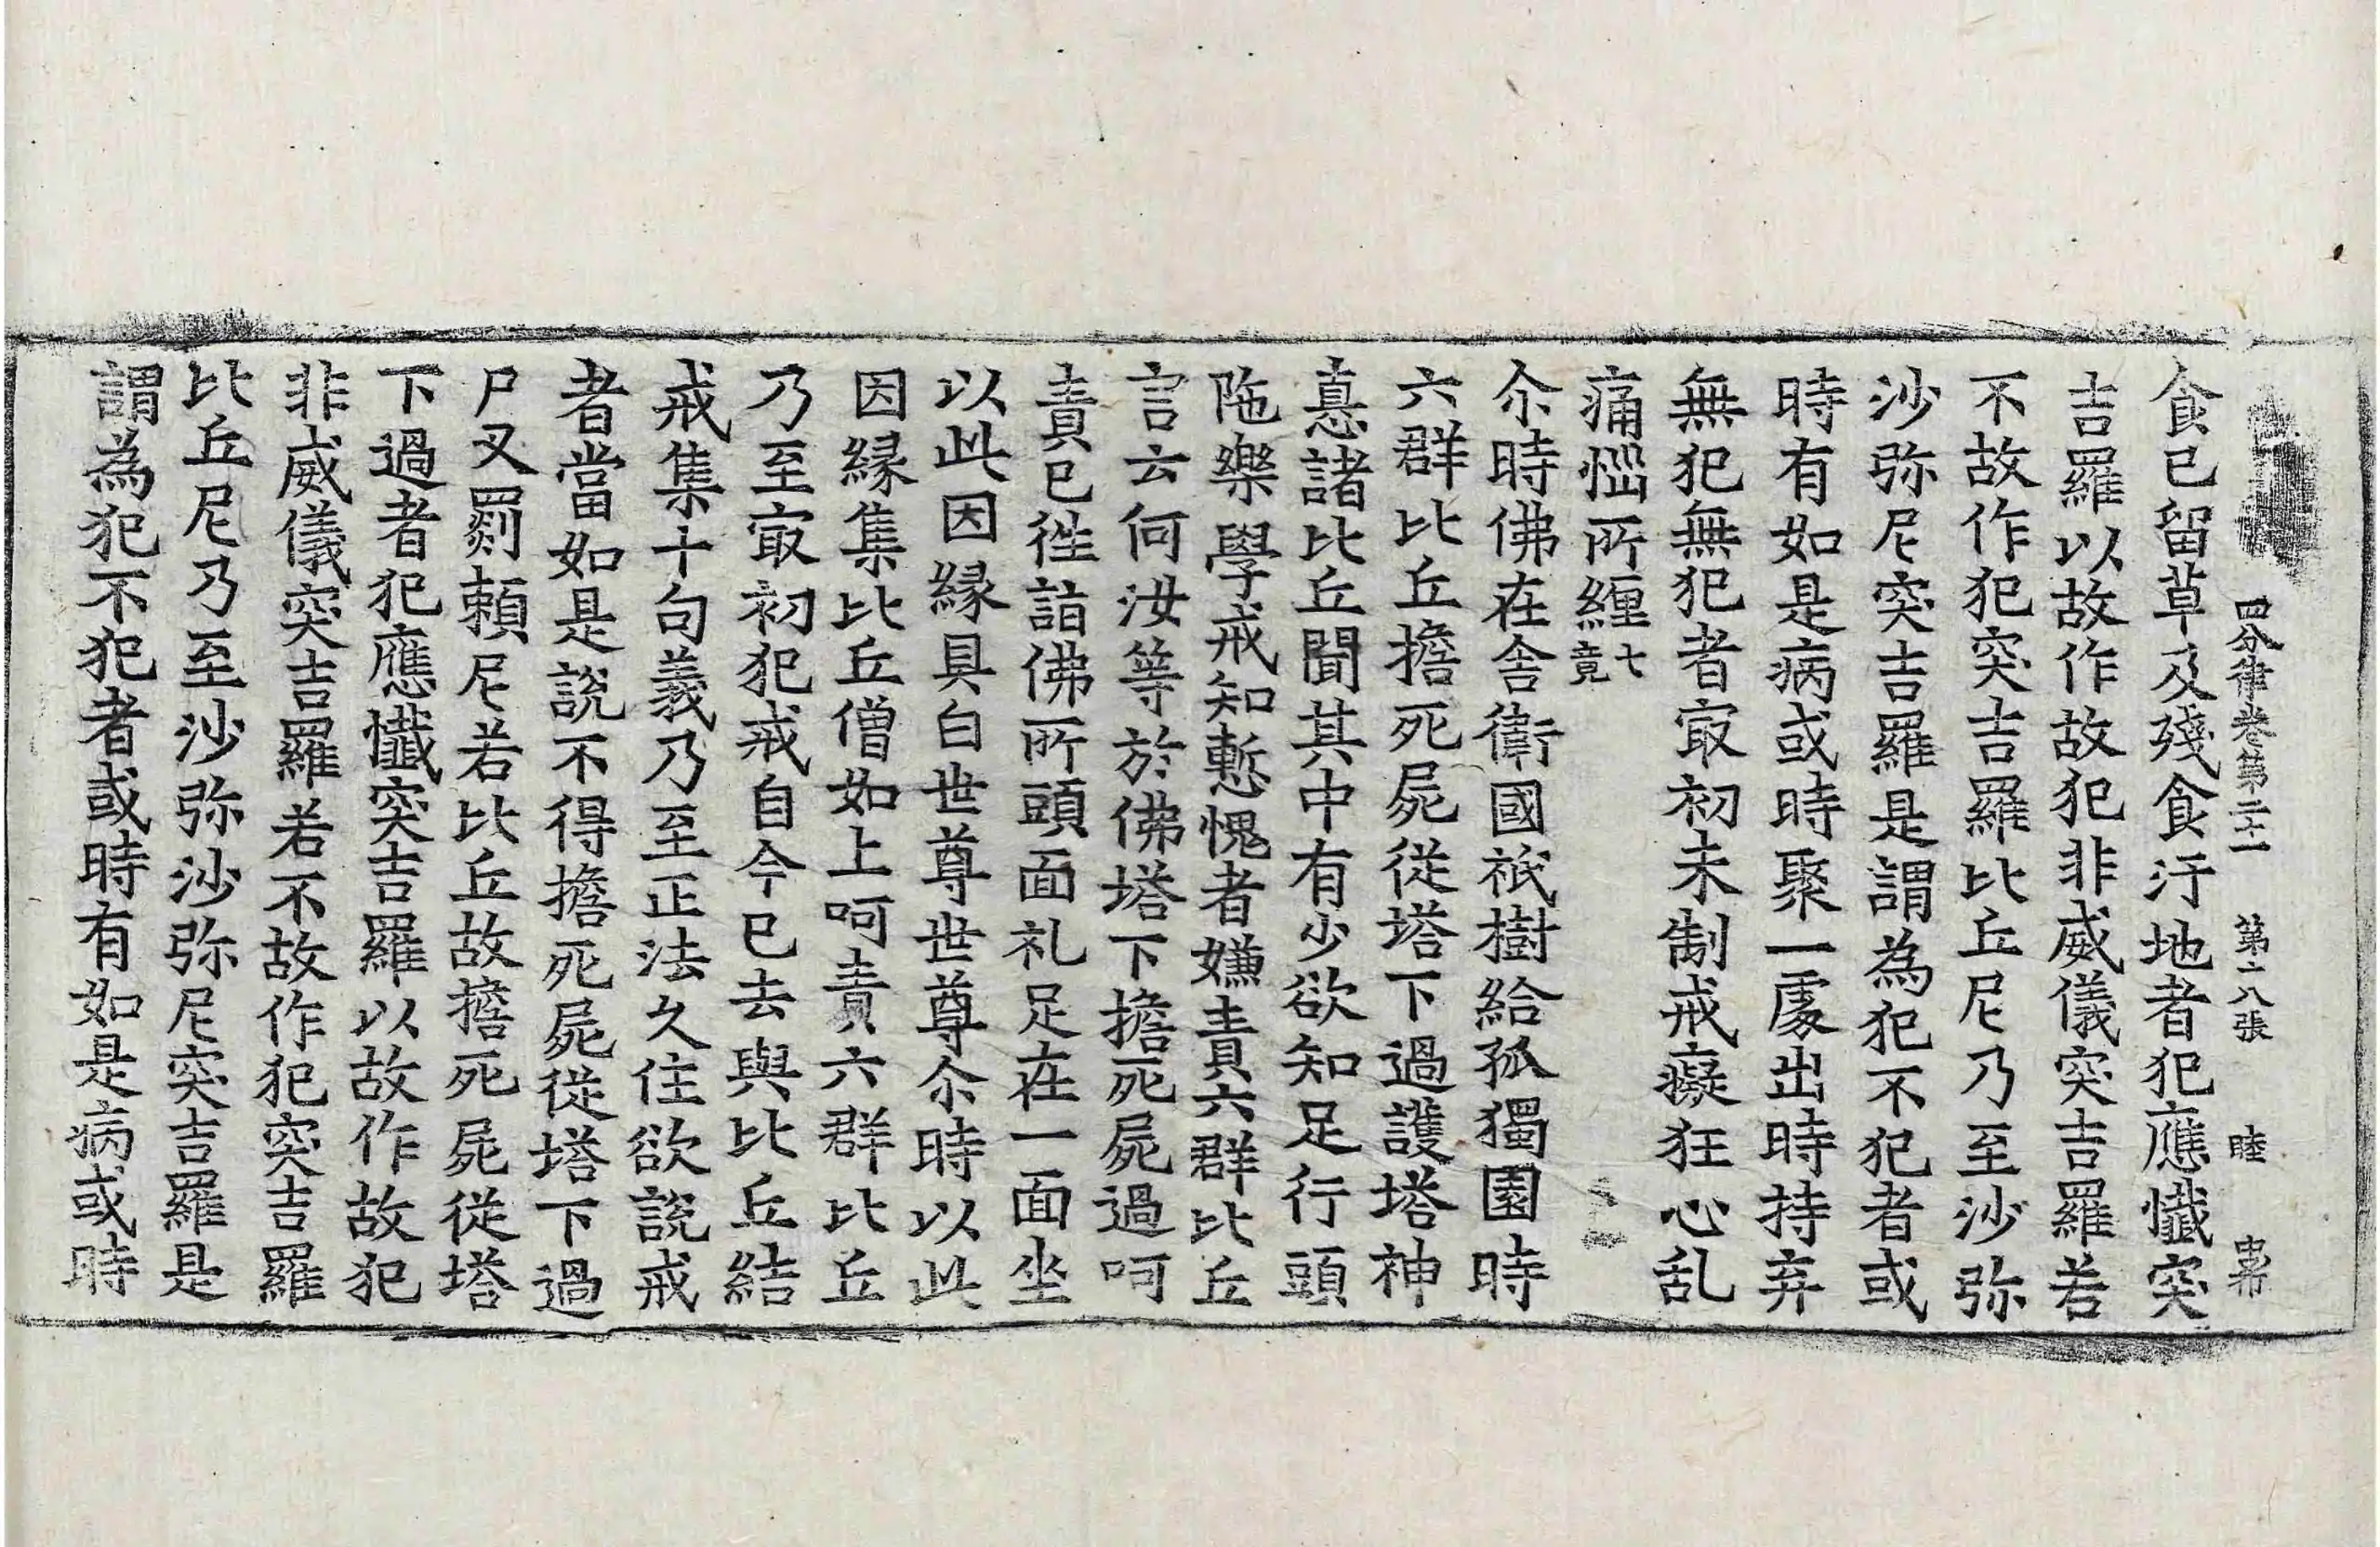 四分律卷第二十一 第六張 睦
食已留草及殘食汙地者犯應懺突
吉羅以故作故犯非威儀突吉羅若
不故作犯突吉羅比丘尼乃至沙弥
沙弥尼突吉羅是謂為犯不犯者或
時有如是病或時聚一處出時持弃
無犯無犯者㝡初未制戒癡狂心乱
痛惱所纏七竟
尒時佛在舍衛國祇樹給孤獨園時
六群比丘擔死屍從塔下過護塔神
恚諸比丘聞其中有少欲知足行頭
陁樂學戒知慙愧者嫌責六群比丘
言云何汝等於佛塔下擔死屍過呵
責已徃詣佛所頭面礼足在一面坐
以此因縁具白世尊世尊尒時以此
因縁集比丘僧如上呵責六群比丘
乃至㝡初犯戒自今已去與比丘結
戒集十句義乃至正法久住欲說戒
者當如是說不得擔死屍從塔下過
尸叉罽頼尼若比丘故擔死屍從塔
下過者犯應懺突吉羅以故作故犯
非威儀突吉羅若不故作犯突吉羅
比丘尼乃至沙弥沙弥尼突吉羅是
謂為犯不犯者或時有如是病或時